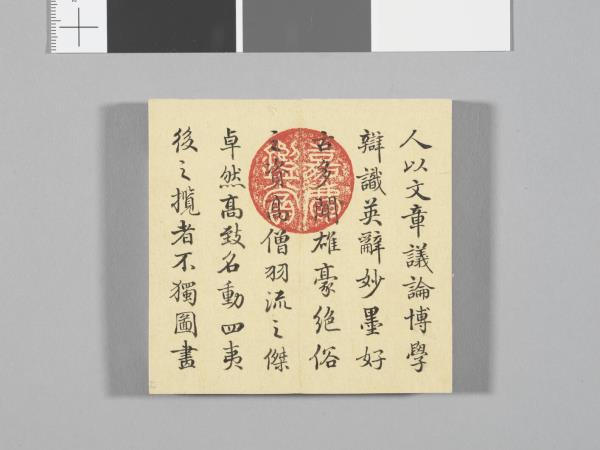 人以文章議論博學
辯識英辭妙墨好
古多聞雄豪絶俗
之資高僧羽流之傑
卓然高致名動四夷
後之攬者不獨圖畫